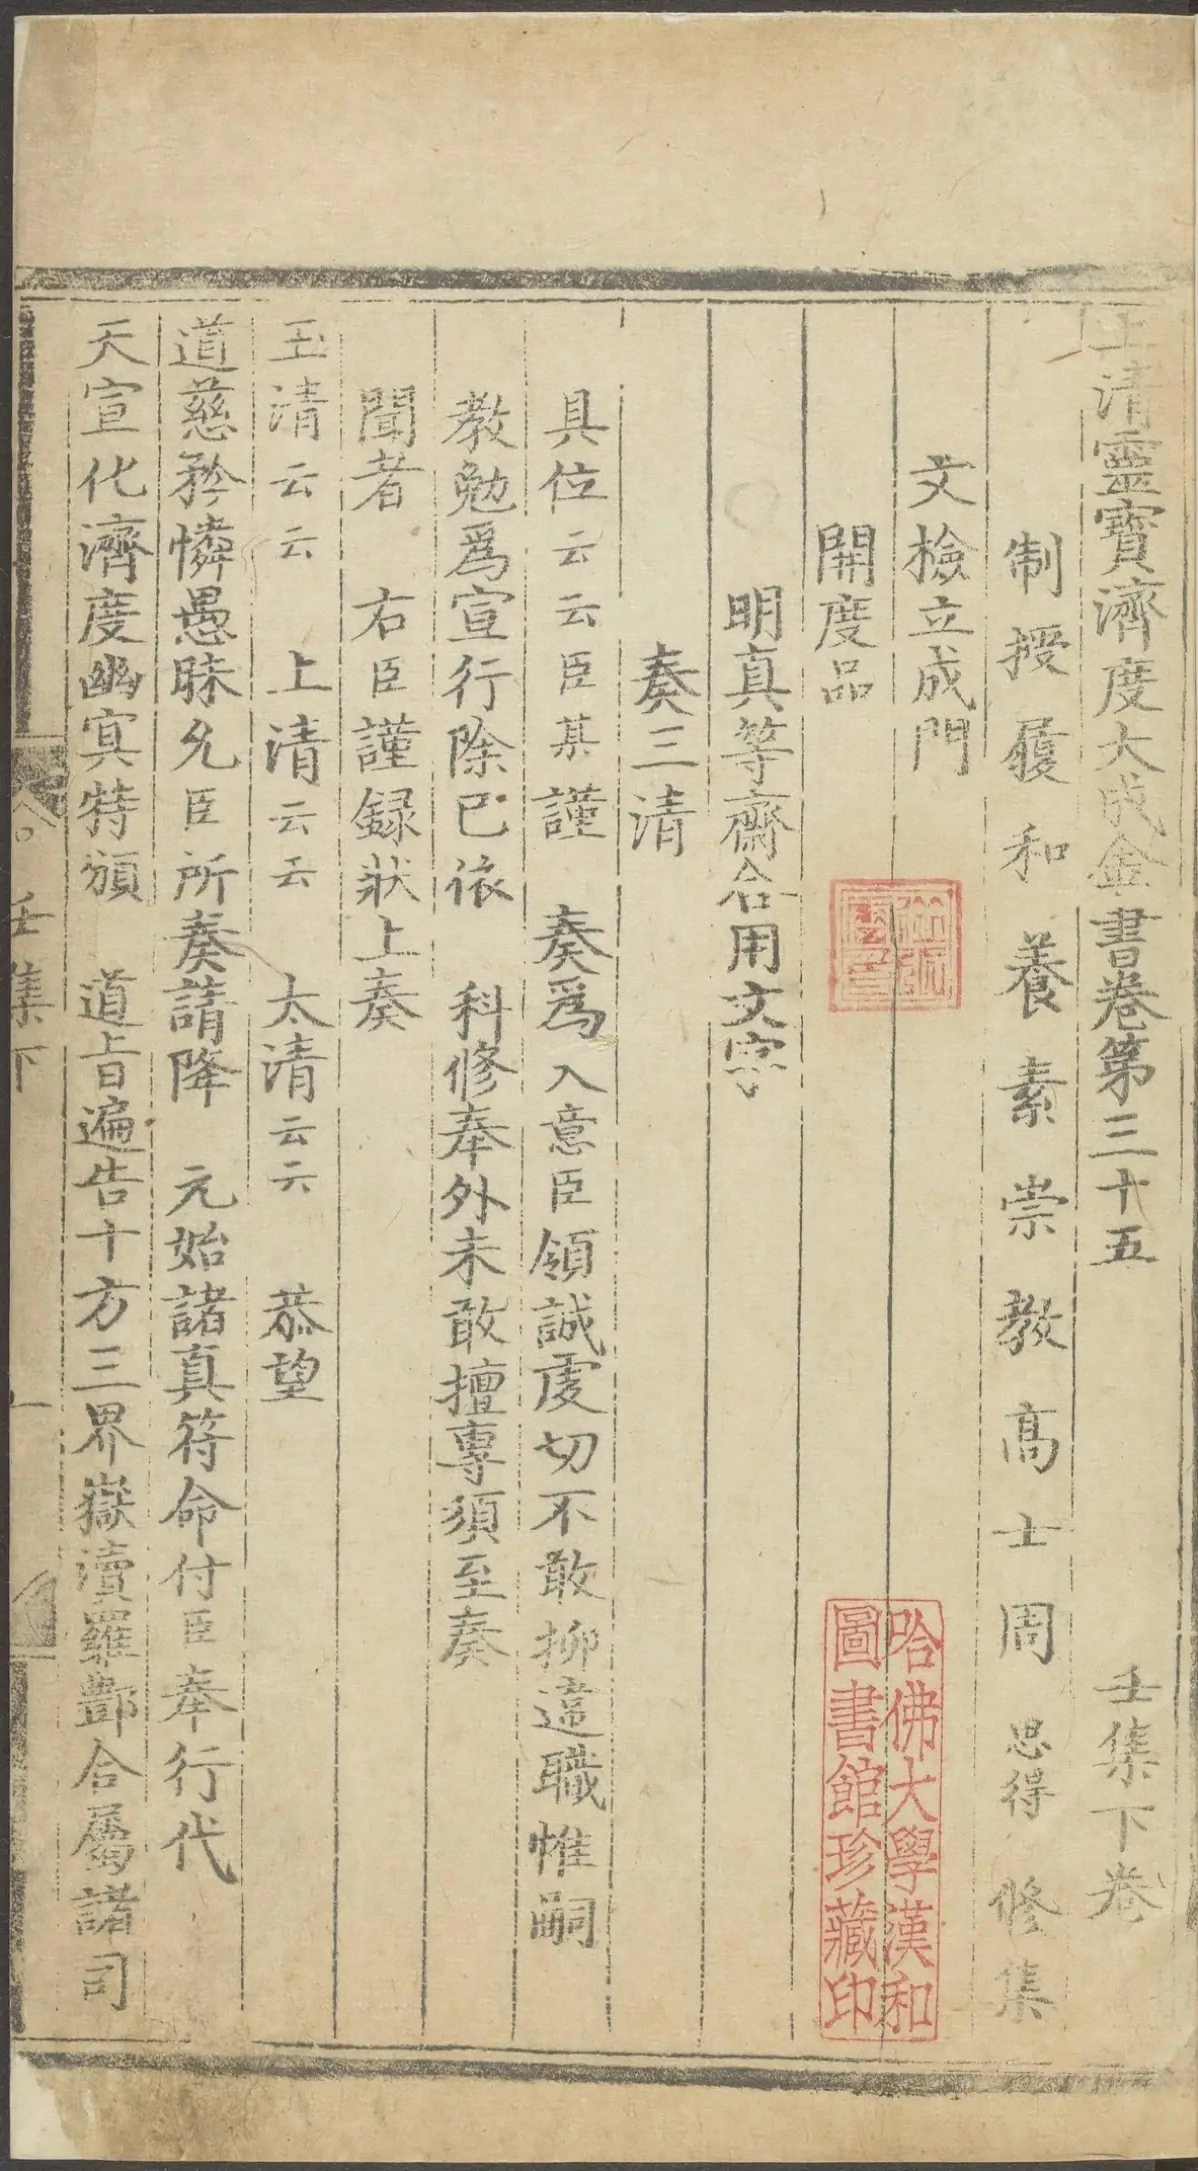 上清靈寶濟度大成金書卷第三十五 壬集下卷
制授履和養素崇教高士周思得修集
文檢立成門
開度品
明真等齋合用文字
奏三清
具位云云臣某謹 奏爲入意臣領誠虔切不敢抑違職惟嗣
教勉爲宣行除已依 科修奉外未敢擅專須至奏
聞者 右臣謹録狀上奏
玉清云云 上清云云 太清云云 恭望
道慈矜憐愚昧允臣所奏請降 元始諸真符命付臣奉行代
天宣化濟度幽㝠特頒 道旨遍告十方三界嶽瀆羅酆合屬諸司
壬集下
一
哈佛大學漢和
圖書館珍藏印